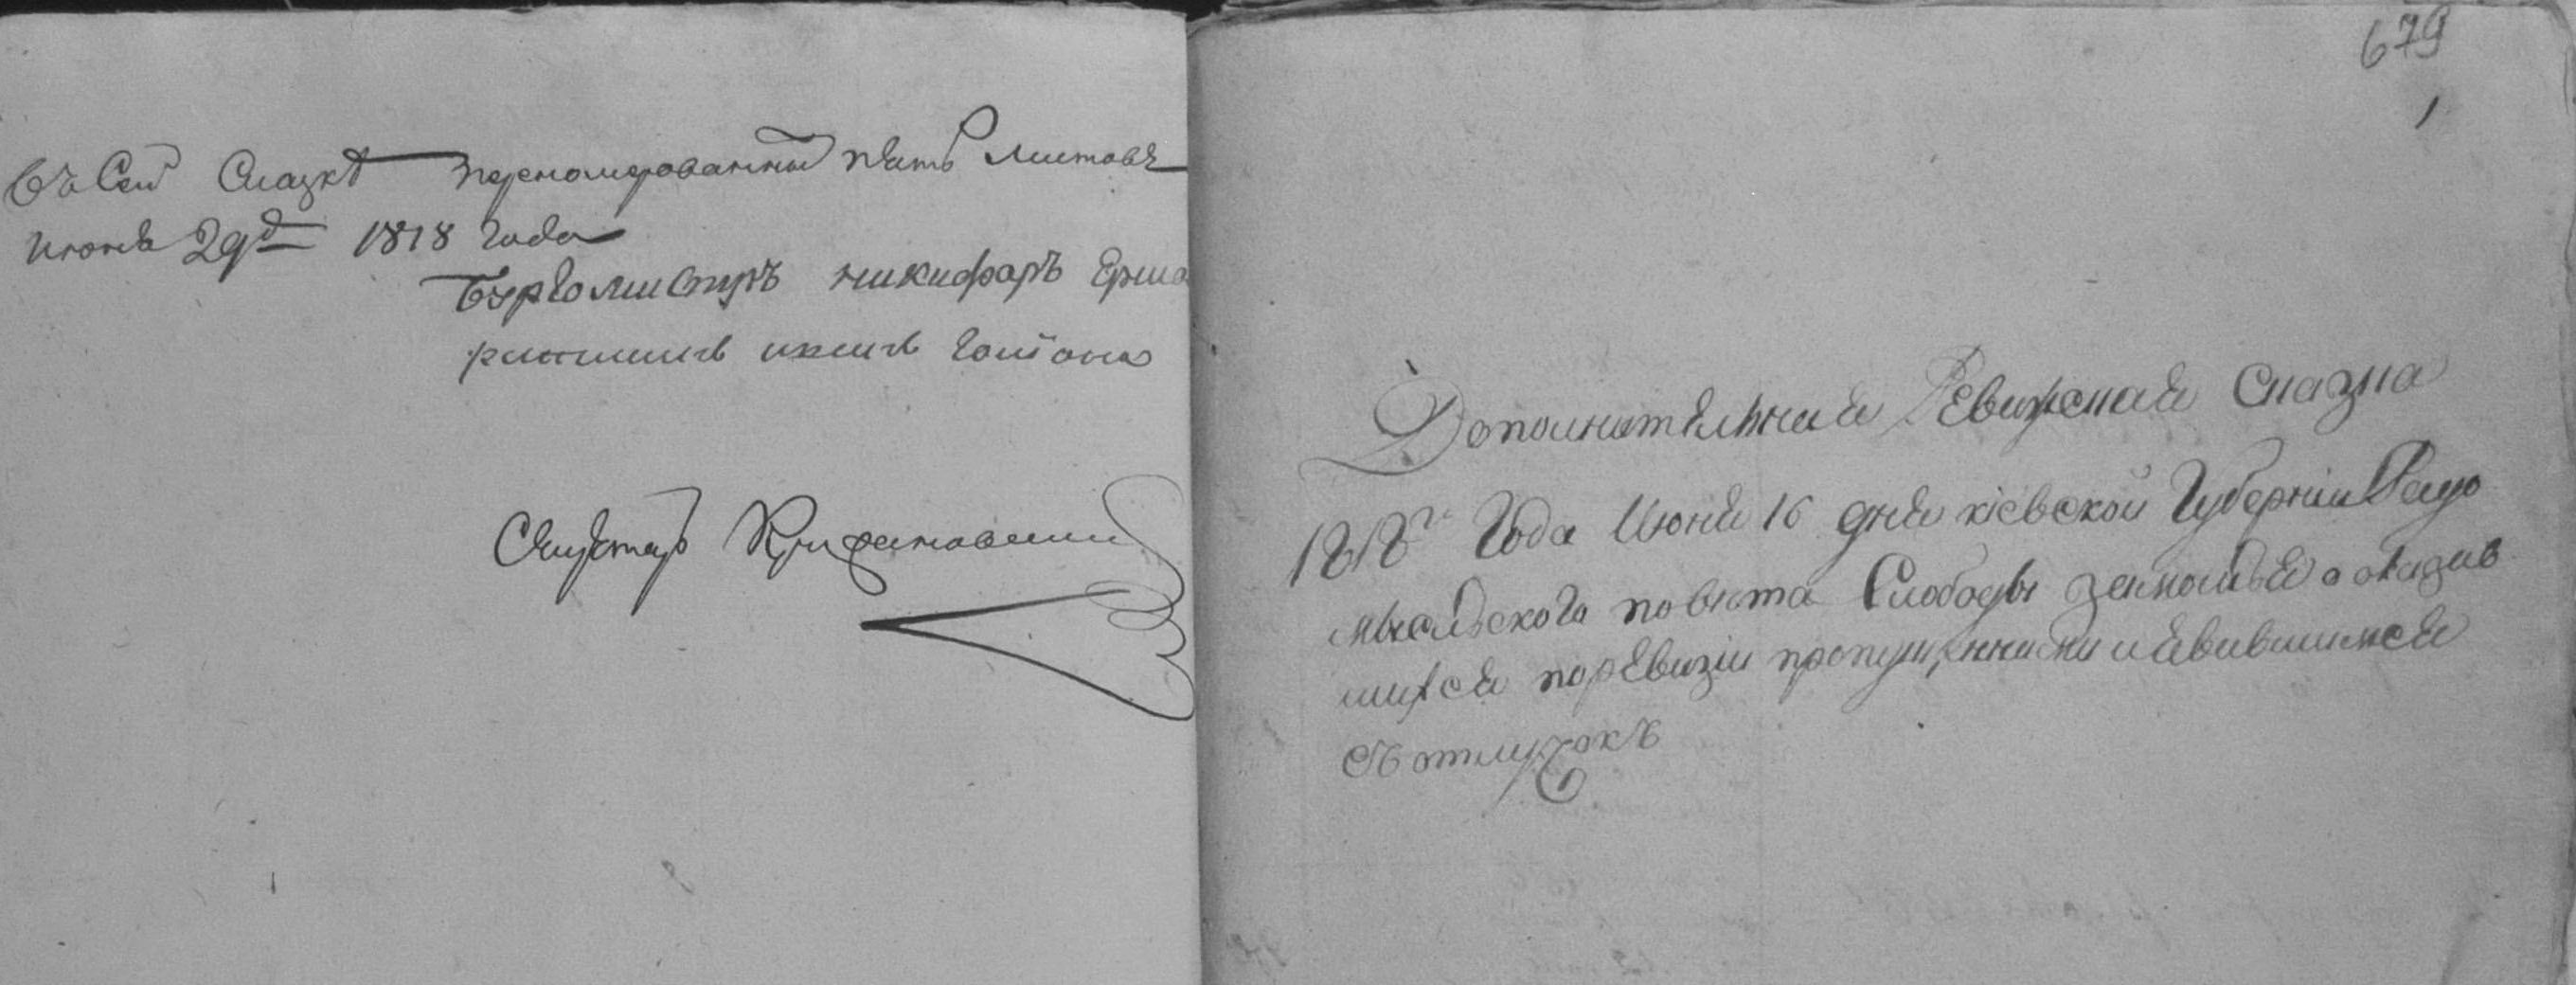 Въ Сей Сказкѣ перномерованный пять листовъ
июня 29д 1818 года
Бургомистръ никифаръ
Секретарь
679
1
Дополнительная Ревижская Сказка
1818го Года Июня 16 дня кіевской Губерніи Радо
мысльского повѣта Слободы замостья о оказав
шихся поревизіи пропущенными и явившимся
съ отлучокъ